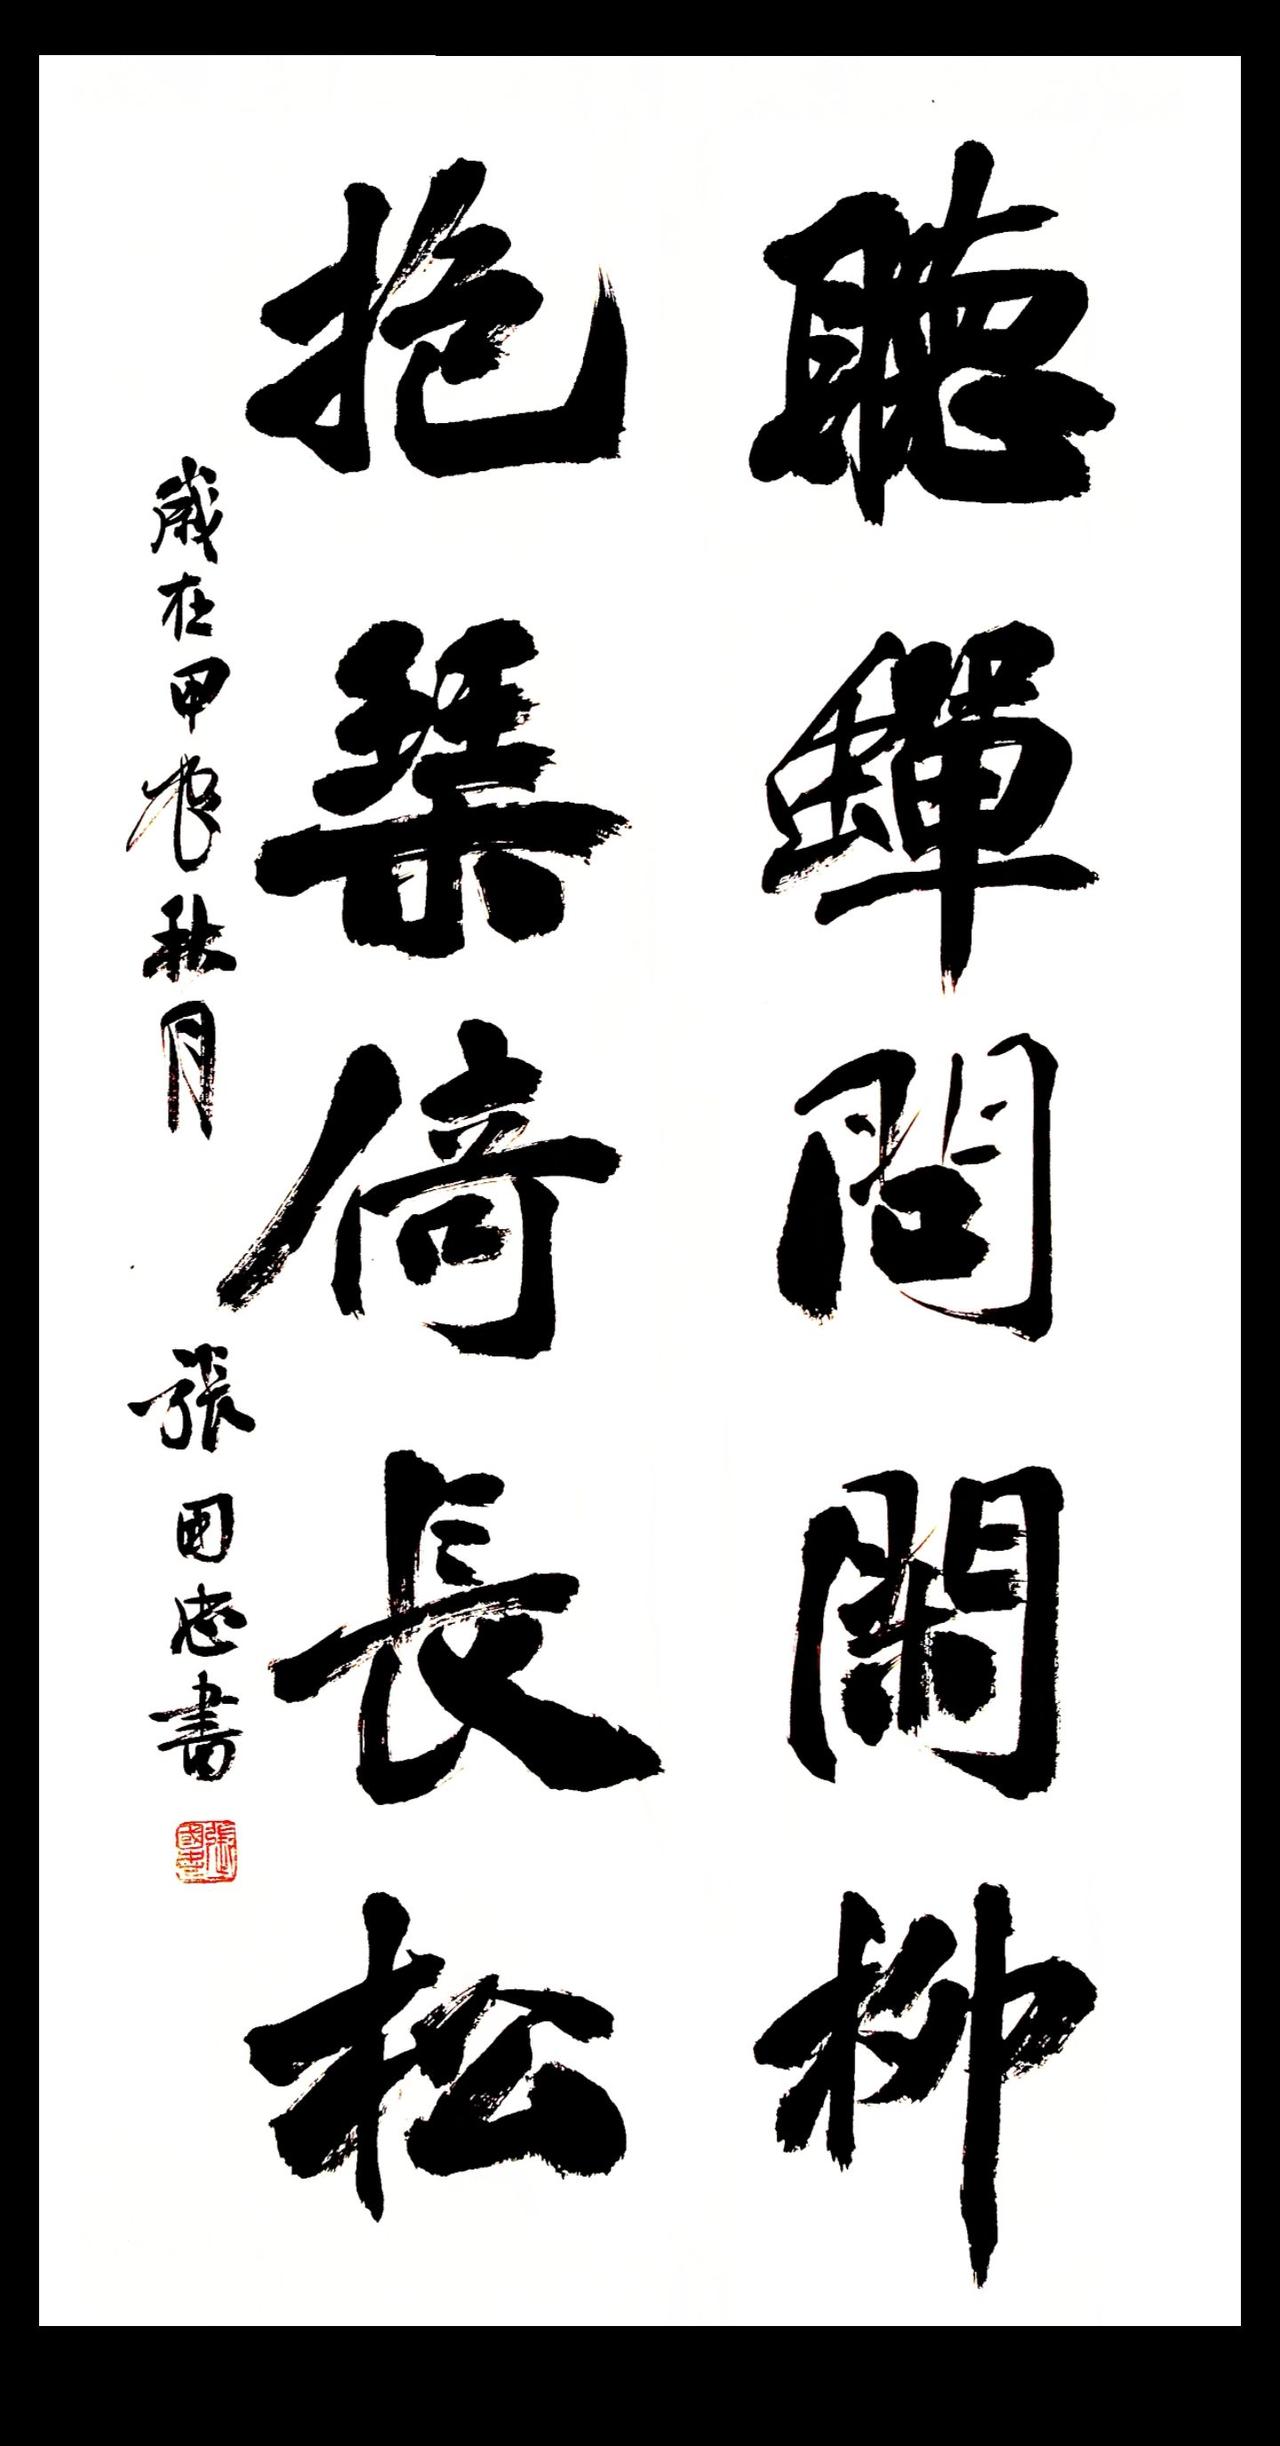 聽蟬問閑柳
抱琹倚長松
歲在甲辰秋月
張国忠書
張國忠